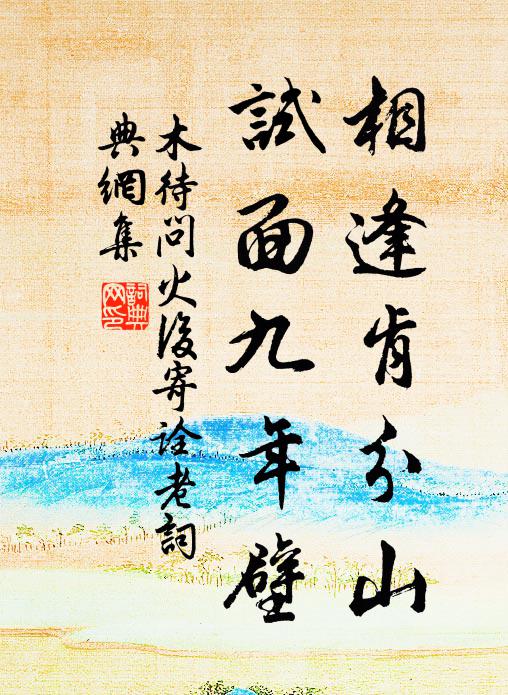 相逢肯分山
試面九年壁
木待問火後寄詮老詞
典網集
詞典
网印